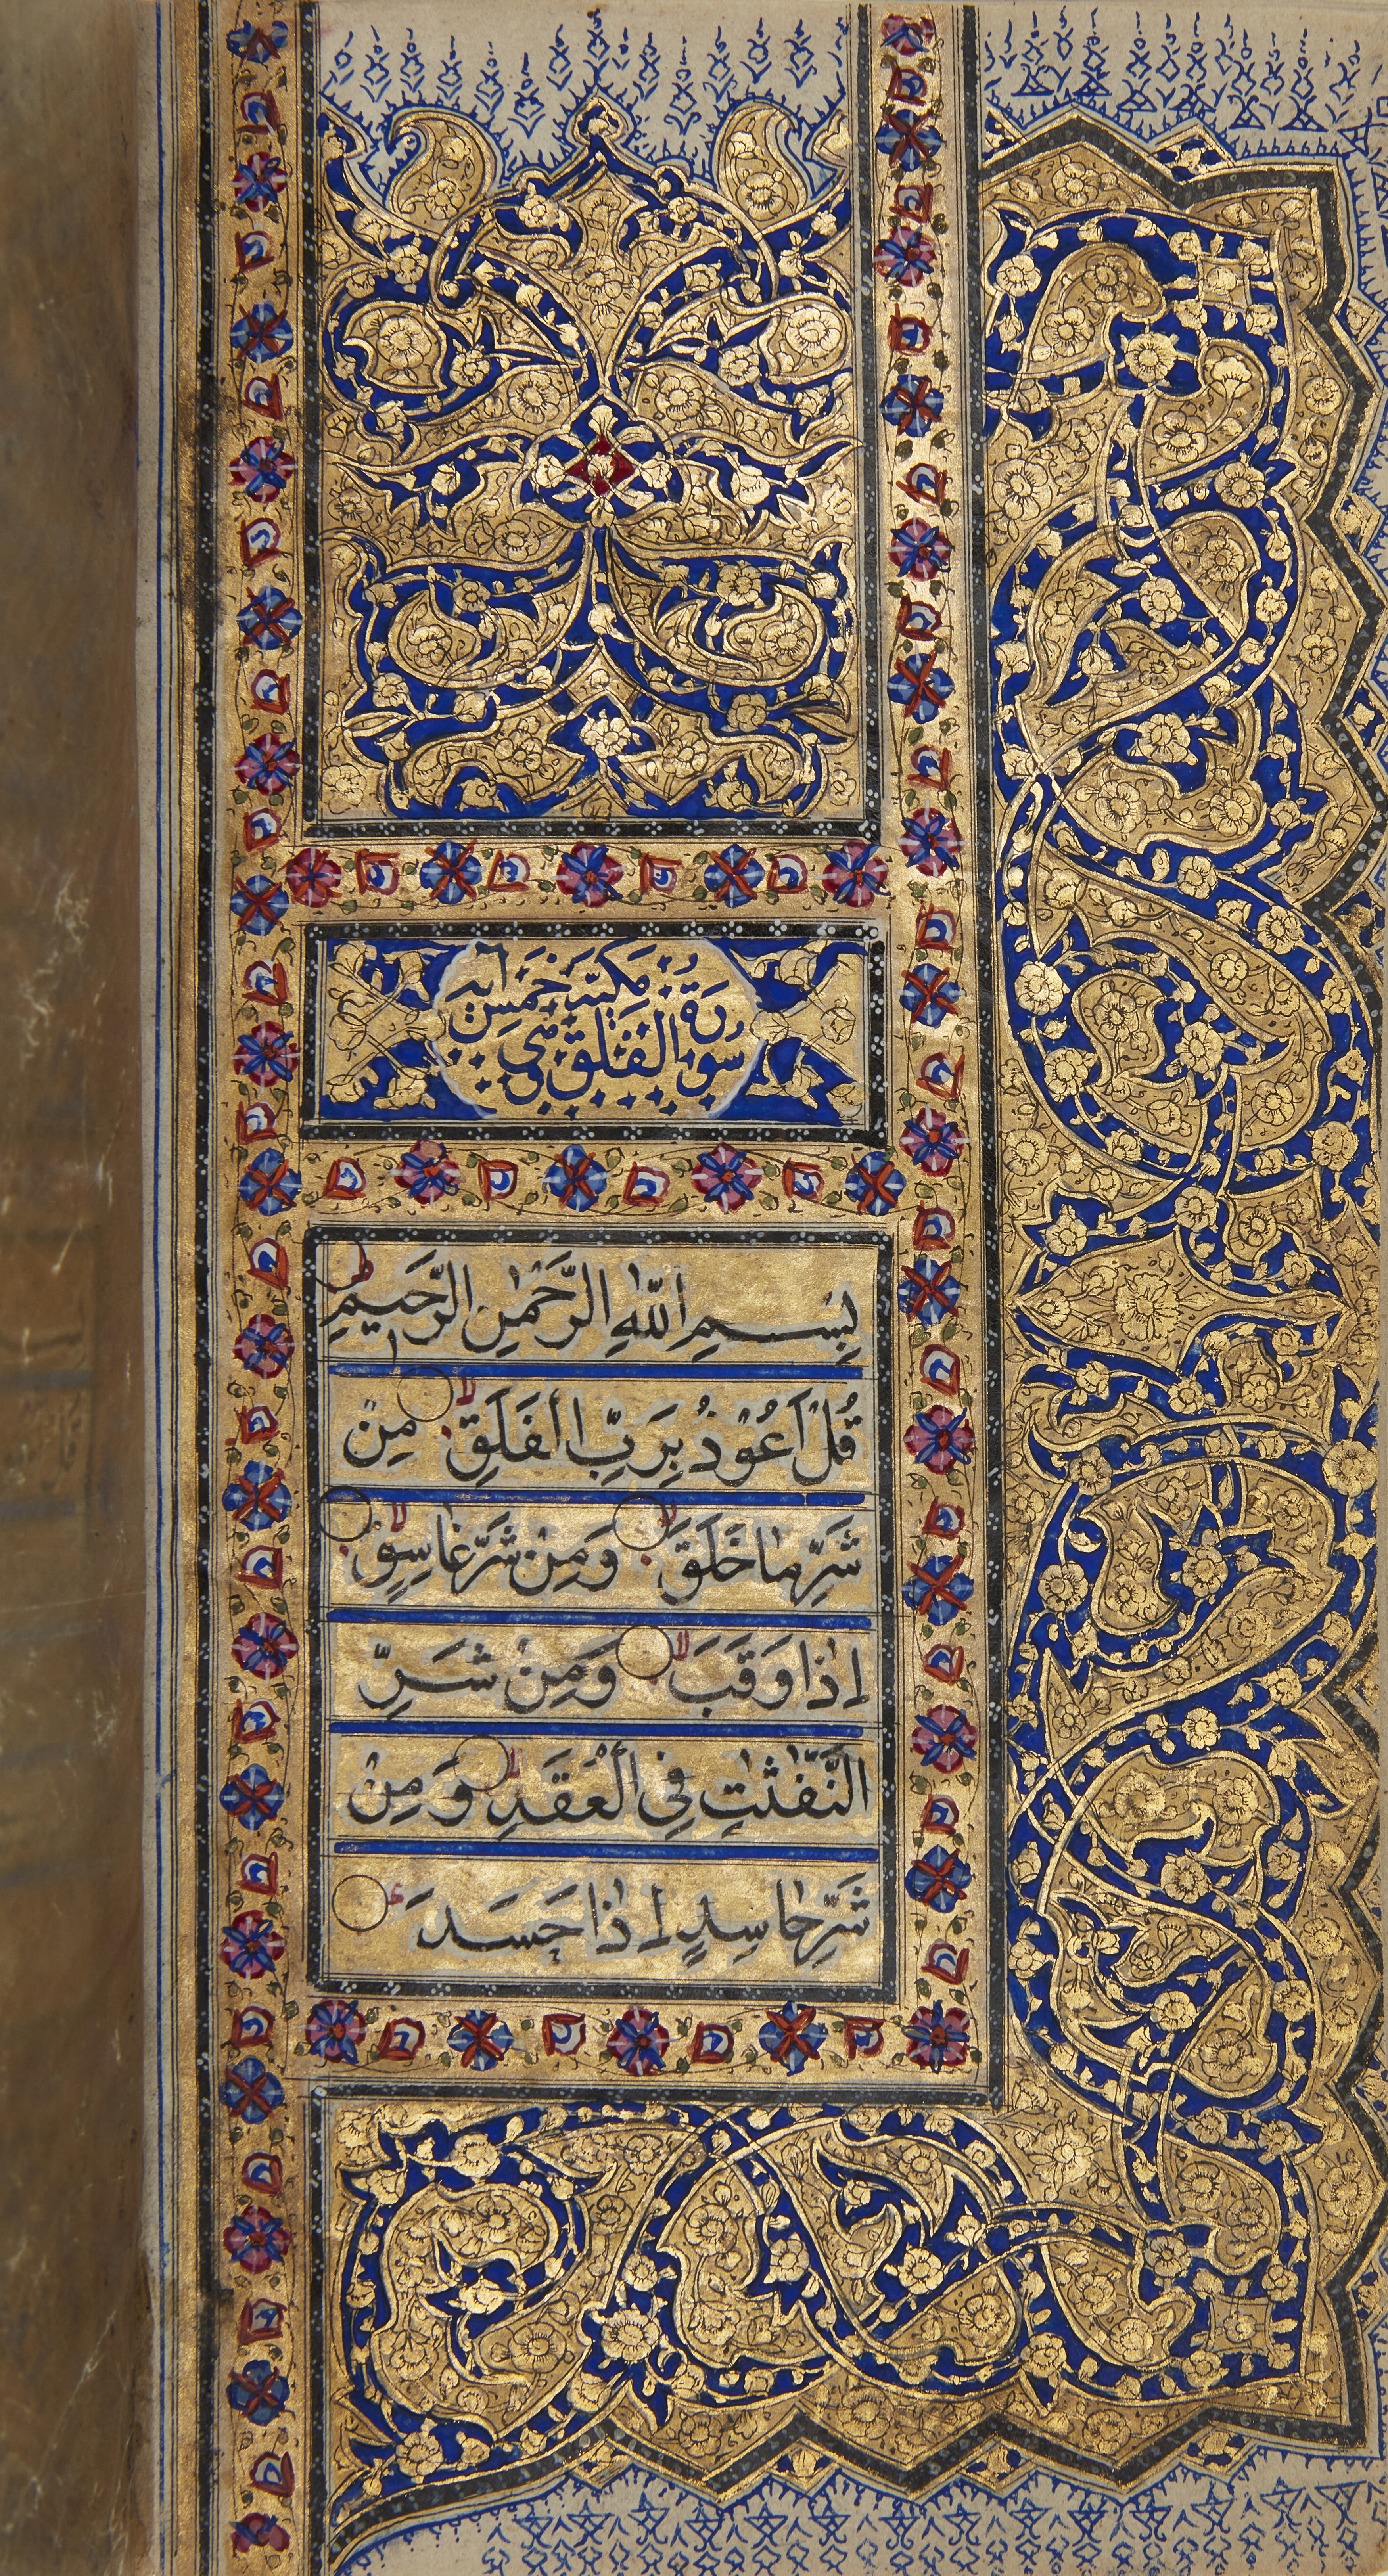 سورة الفلق مكية خمس آيات
بِسْمِ اللّٰهِ الرَّحْمٰنِ الرَّحِيمِ
قُلْ اَعُوْذُ بِرَبِّ الْفَلَقِ لا مِنْ
شَرِّ مَا خَلَقَ لا وَمِنْ شَرِّ غَاسِقٍ لا
اِذَا وَقَبَ لا وَمِنْ شَرِّ
النَّفّٰثٰتِ فِي الْعُقَدِ لا وَمِنْ
شَرِّ حَاسِدٍ اِذَا حَسَدَ ع